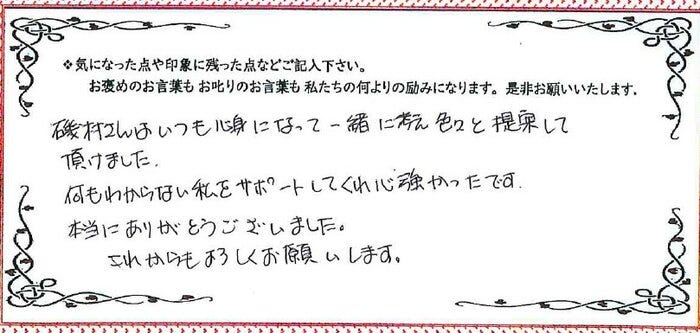 ❖気になった点や印象に残った点などご記入下さい。
お褒めのお言葉も お叱りのお言葉も 私たちの何よりの励みになります。是非お願いいたします．
磯村さんはいつも心身になって一緒に考え 色々と提案して
頂けました．
何もわからない私をサポートしてくれ心強かったです．
本当にありがとうございました。
これからもよろしくお願いします。